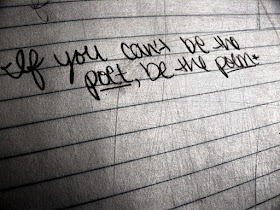 "If you can't be the
poet, be the poem"